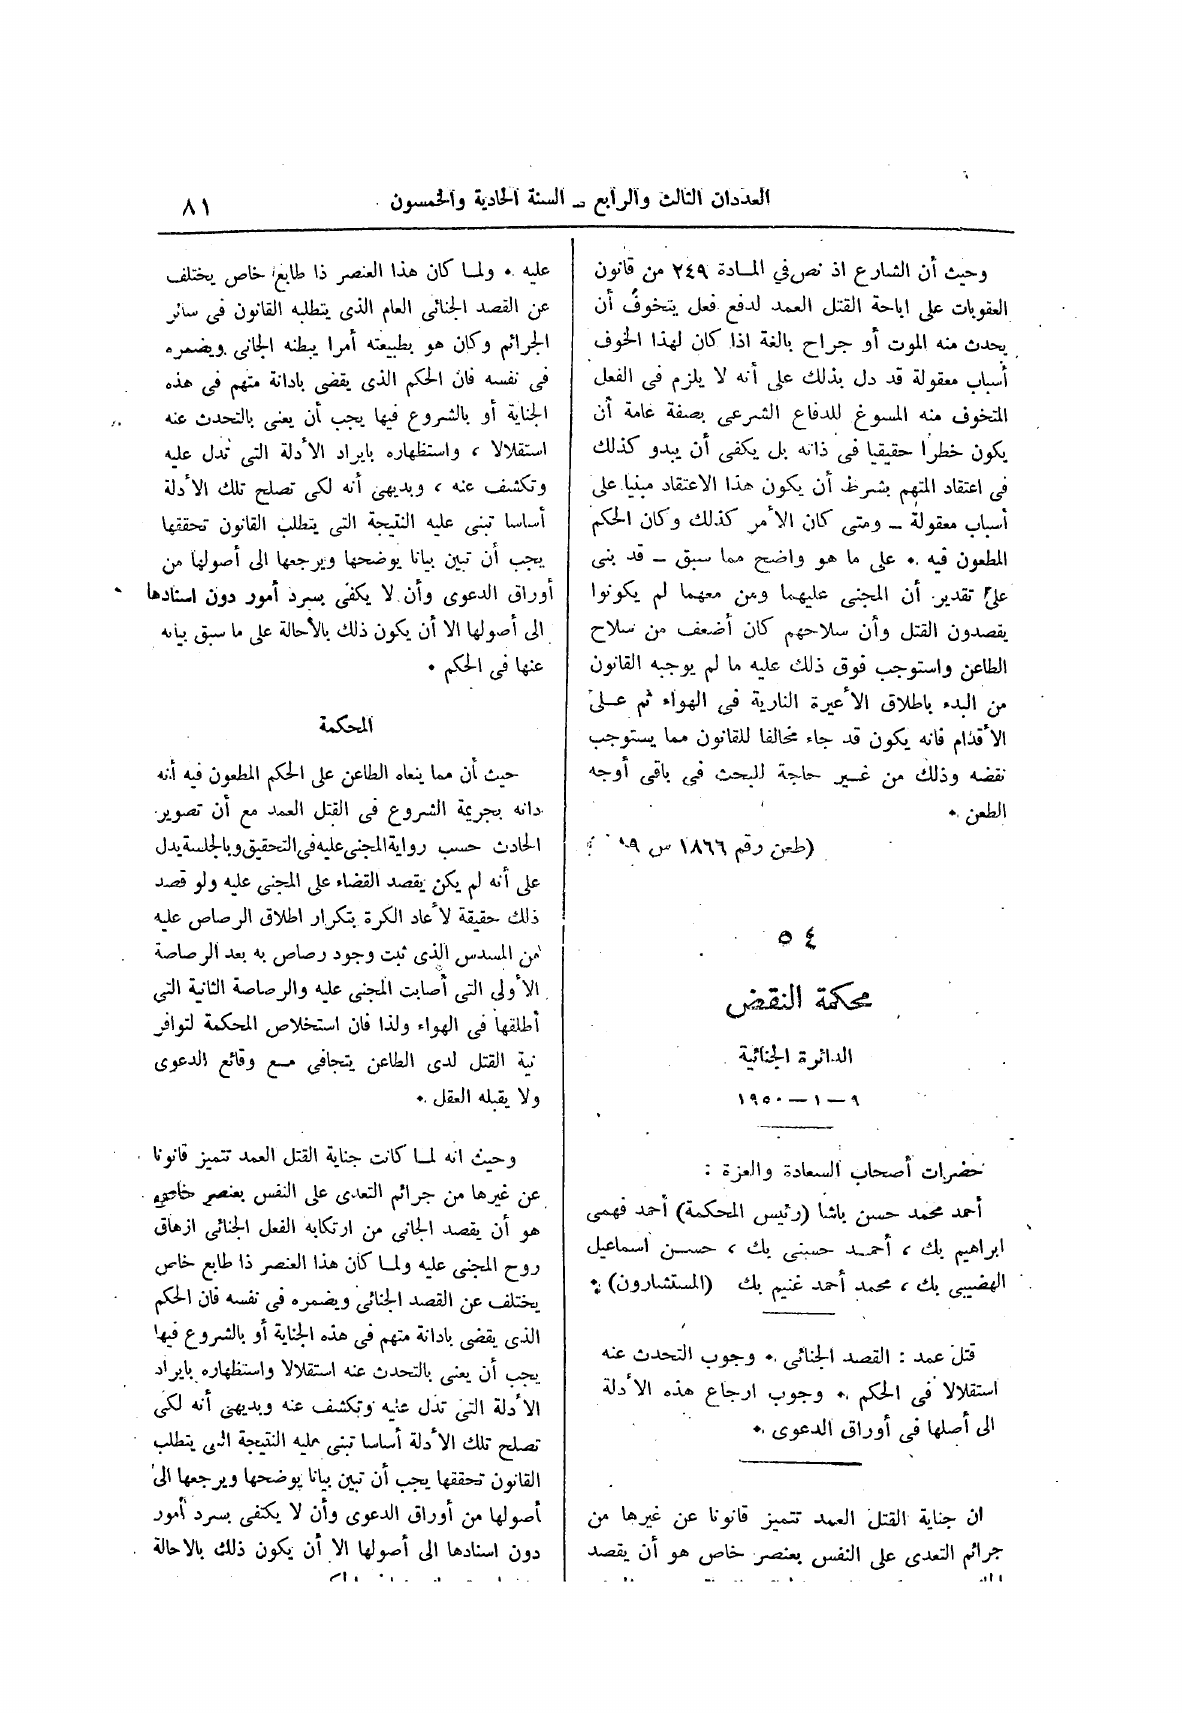 العددان الثالث والرابع ــ السنة الحادية والخمسون
٨١
وحيث أن الشارع اذ نص في المادة ٢٤٩ من قانون
العقوبات على اباحة القتل العمد لدفع فعل يتخوف أن
يحدث منه الموت أو جراح بالغة اذا كان لهذا الخوف
أسباب معقولة قد دل بذلك على أنه لا يلزم فى الفعل
المتخوف منه المسوغ للدفاع الشرعى بصفة عامة أن
يكون خطرا حقيقيا فى ذاته بل يكفى أن يبدو كذلك
فى اعتقاد المتهم بشرط أن يكون هذا الاعتقاد مبنيا على
أسباب معقولة ــ ومتى كان الأمر كذلك وكان الحكم
المطعون فيه ٠ على ما هو واضح مما سبق ــ قد بنى
على تقدير أن المجنى عليهما ومن معهما لم يكونوا
يقصدون القتل وأن سلاحهم كان أضعف من سلاح
الطاعن واستوجب فوق ذلك عليه ما لم يوجبه القانون
من البدء باطلاق الأعيرة النارية فى الهواء ثم على
الأقدام فانه يكون قد جاء مخالفا للقانون مما يستوجب
نقضه وذلك من غير حاجة للبحث فى باقى أوجه
الطعن ٠
(طعن رقم ١٨٦٦ س ١٩
٥٤
محكمة النقض
الدائرة الجنائية
٩ــ١ــ١٩٥٠
حضرات أصحاب السعادة والعزة :
أحمد محمد حسن باشا (رئيس المحكمة) أحمد فهمى
ابراهيم بك ، أحمد حسنى بك ، حسن اسماعيل
الهضيبى بك ، محمد أحمد غنيم بك (المستشارون) ٠
قتل عمد : القصد الجنائى ٠ وجوب التحدث عنه
استقلالا فى الحكم ٠ وجوب ارجاع هذه الأدلة
الى أصلها فى أوراق الدعوى ٠
ان جناية القتل العمد تتميز قانونا عن غيرها من
جرائم التعدى على النفس بعنصر خاص هو أن يقصد
عليه ٠ ولما كان هذا العنصر ذا طابع خاص يختلف
عن القصد الجنائى العام الذى يتطلبه القانون فى سائر
الجرائم وكان هو بطبيعته أمرا يبطنه الجانى ويضمره
فى نفسه فان الحكم الذى يقضى بادانة متهم فى هذه
الجناية أو بالشروع فيها يجب أن يعنى بالتحدث عنه
استقلالا ، واستظهاره بايراد الأدلة التى تدل عليه
وتكشف عنه ، وبديهى أنه لكى تصلح تلك الأدلة
أساسا تبنى عليه النتيجة التى يتطلب القانون تحققها
يجب أن تبين بيانا يوضحها ويرجعها الى أصولها من
أوراق الدعوى وأن لا يكفى بسرد أمور دون اسنادها
الى أصولها الا أن يكون ذلك بالأحالة على ما سبق بيانه
عنها فى الحكم ٠
المحكمة
حيث أن مما ينعاه الطاعن على الحكم المطعون فيه أنه
دانه بجريمة الشروع فى القتل العمد مع أن تصوير
الحادث حسب رواية المجنى عليه فى التحقيق وبالجلسة يدل
على أنه لم يكن يقصد القضاء على المجنى عليه ولو قصد
ذلك حقيقة لأعاد الكرة بتكرار اطلاق الرصاص عليه
من المسدس الذى ثبت وجود رصاص به بعد الرصاصة
الأولى التى أصابت المجنى عليه والرصاصة الثانية التى
أطلقها فى الهواء ولذا فان استخلاص المحكمة لتوافر
نية القتل لدى الطاعن يتجافى مع وقائع الدعوى
ولا يقبله العقل ٠
وحيث انه لما كانت جناية القتل العمد تتميز قانونا
عن غيرها من جرائم التعدى على النفس بعنصر خاص
هو أن يقصد الجانى من ارتكابه الفعل الجنائى ازهاق
روح المجنى عليه ولما كان هذا العنصر ذا طابع خاص
يختلف عن القصد الجنائى ويضمره فى نفسه فان الحكم
الذى يقضى بادانة متهم فى هذه الجناية أو بالشروع فيها
يجب أن يعنى بالتحدث عنه استقلالا واستظهاره بايراد
الأدلة التى تدل عليه وتكشف عنه وبديهى أنه لكى
تصلح تلك الأدلة أساسا تبنى عليه النتيجة التى يتطلب
القانون تحققها يجب أن تبين بيانا يوضحها ويرجعها الى
أصولها من أوراق الدعوى وأن لا يكتفى بسرد أمور
دون اسنادها الى أصولها الا أن يكون ذلك بالاحالة